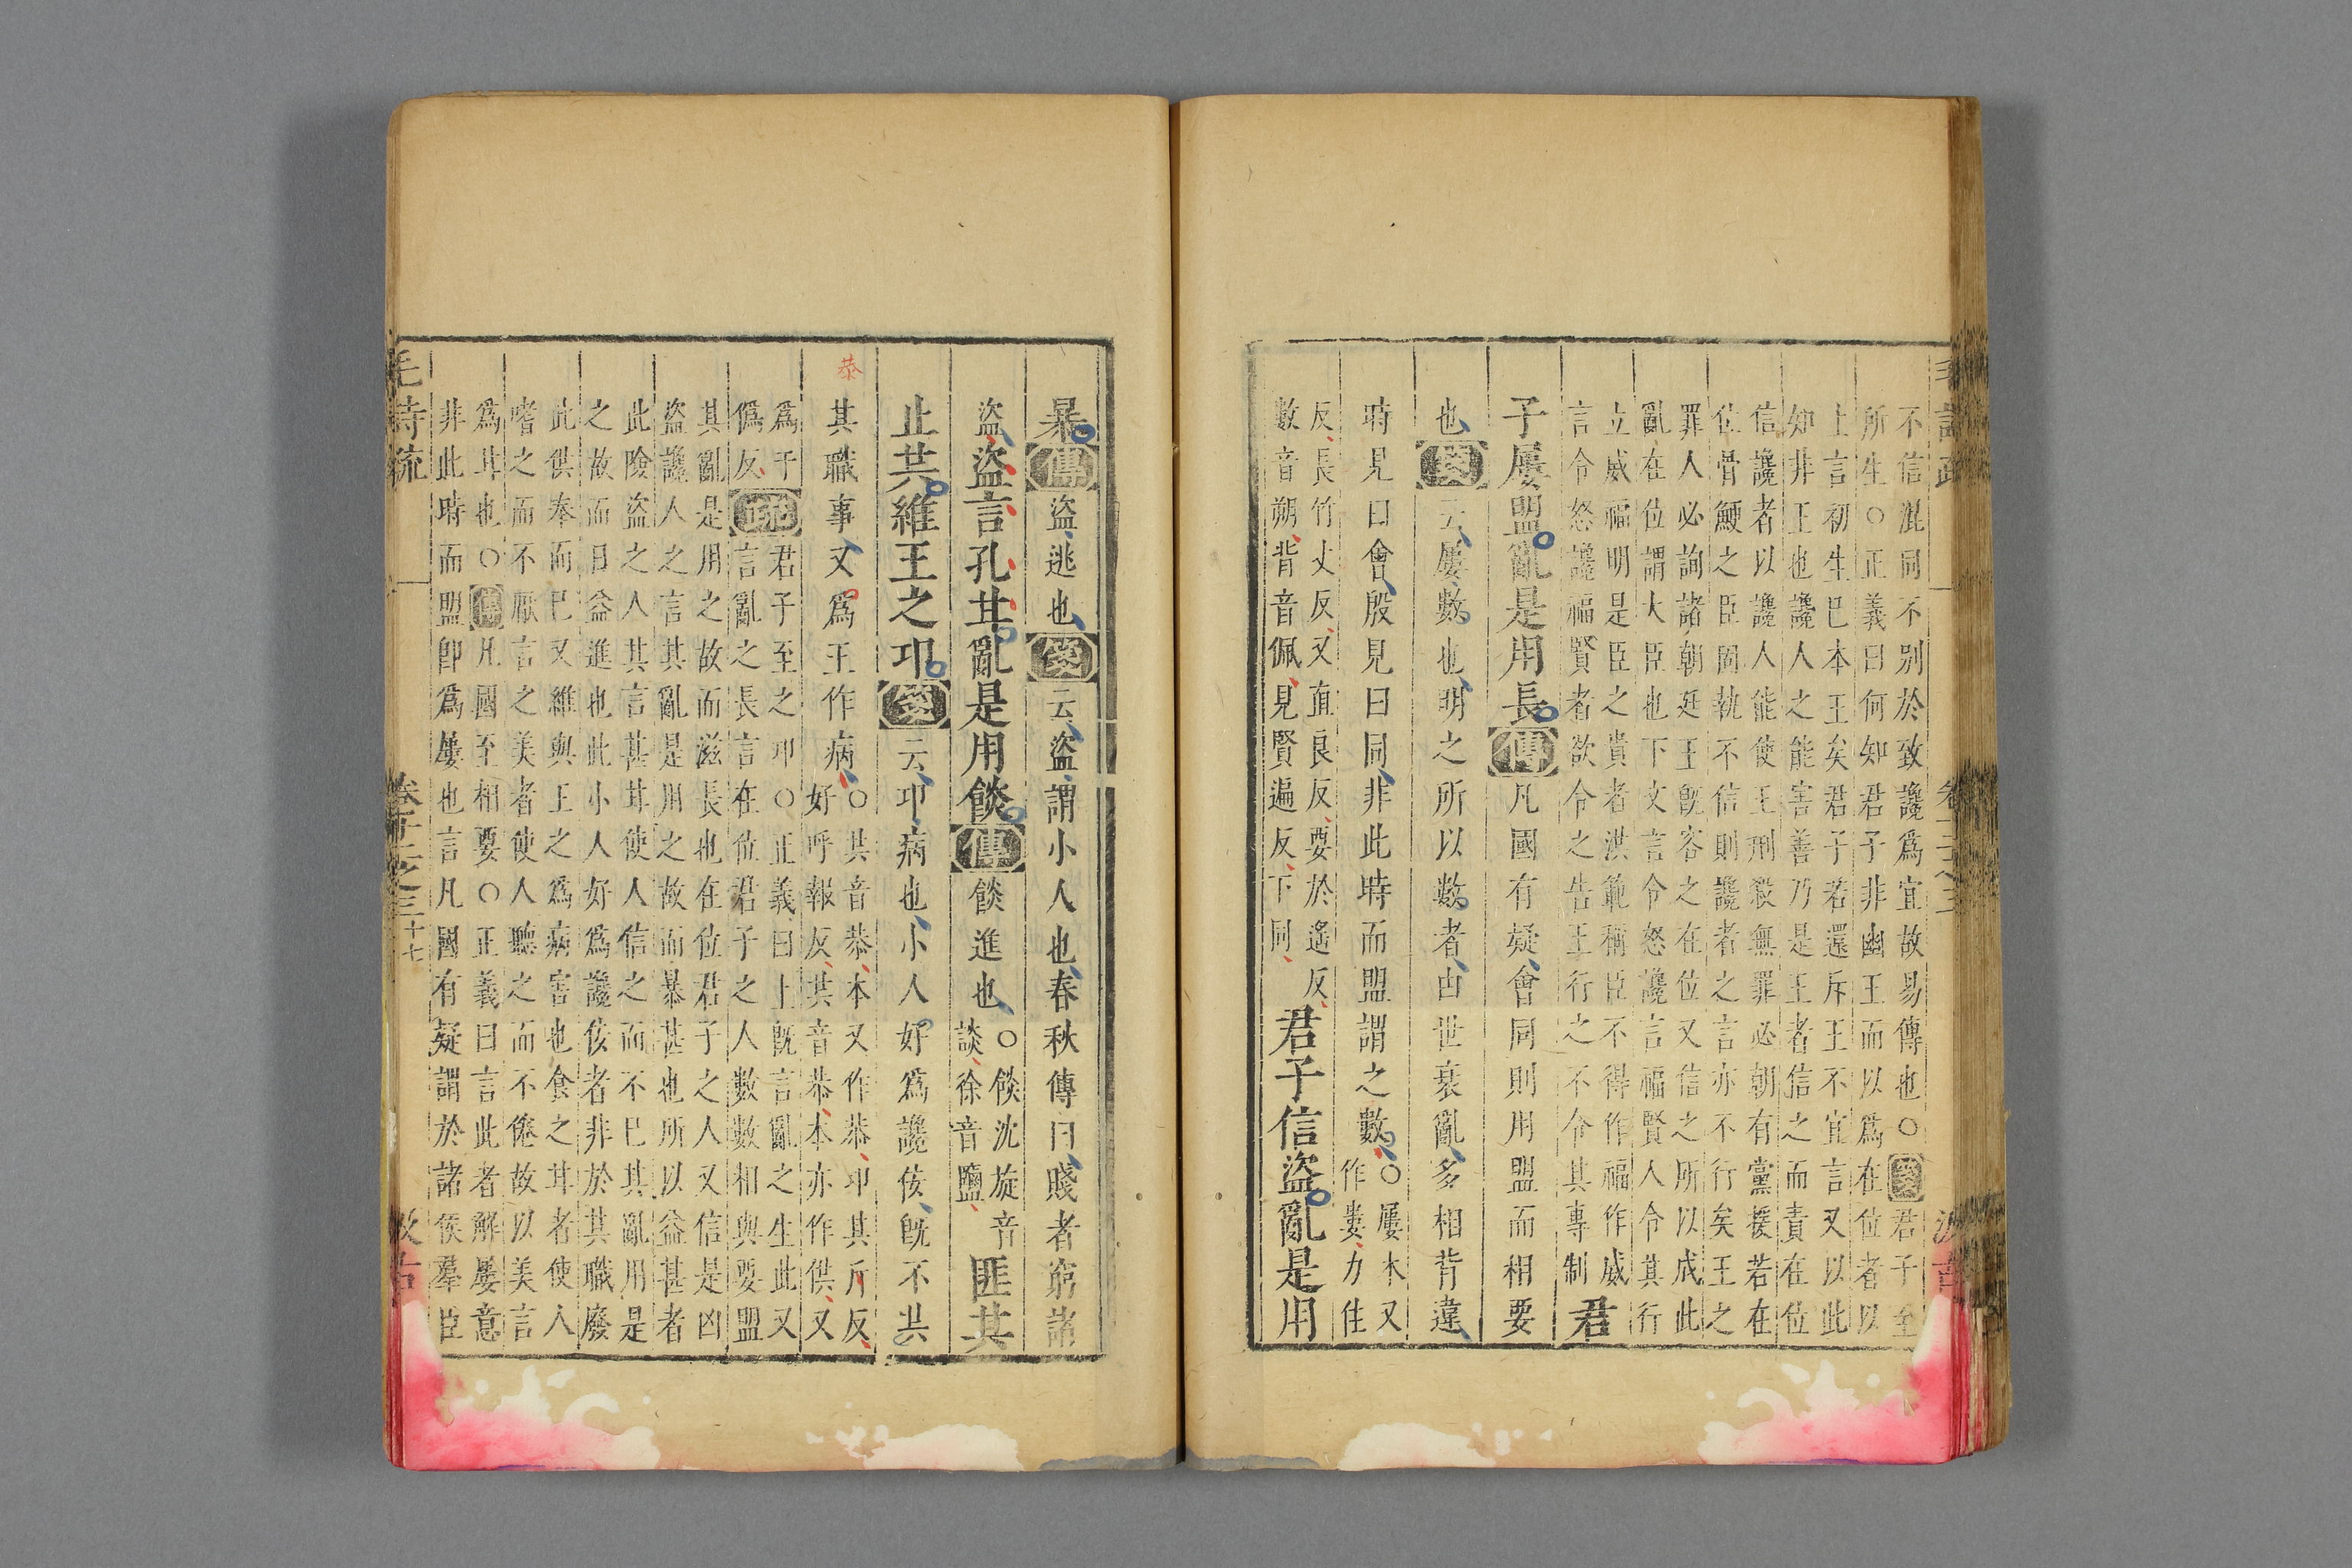 不信混同不別於致讒爲宜故易傳也○箋君子至
所生○正義曰何知君子非幽王而以爲在位者以
上言初生已本王矣君子若還斥王不宜言又以此
知非王也讒人之能害善乃是王者信之而責在位
信讒者以讒人能使王刑殺無罪必朝有黨援若在
位骨鯁之臣固執不信則讒者之言亦不行矣王之
罪人必詢諸朝廷王旣容之在位又信之所以成此
亂在位謂大臣也下文言令怒讒言福賢人令其行
立威福明是臣之貴者洪範稱臣不得作福作威
言令怒讒福賢者欲令之告王行之不令其專制
君
子屢盟亂是用長傳凡國有疑會同則用盟而相要
也箋云屢數也明之所以數者由世衰亂多相背違
時見曰會殷見曰同非此時而盟謂之數○屢本又
作婁力住
反長竹丈反又直良反要於遙反
數音朔背音佩見賢遍反下同
君子信盜亂是用
暴傳盜逃也箋云盜謂小人也春秋傳曰賤者窮諸
盜盜言孔甘亂是用餤傳餤進也○餤沈旋音
談徐音鹽
匪其
止共維王之邛箋云邛病也小人好爲讒佞旣不共
其職事又爲王作病○共音恭本又作恭邛其斤反
好呼報反共音恭本亦作供又
爲于
僞反
疏君子至之邛○正義曰上旣言亂之生此又
言亂之長言在位君子之人數數相與要盟
其亂是用之故而滋長也在位君子之人又信是凶
盜讒人之言其亂是用之故而暴甚也所以益甚者
此險盜之人其言甚甘使人信之而不已其亂用是
之故而日益進也此小人好爲讒佞者非於其職廢
此供奉而已又維與王之爲病害也食之甘者使人
嗜之而不厭言之美者使人聽之而不倦故以美言
爲甘也○傳凡國至相要○正義曰言此者解屢意
非此時而盟卽爲屢也言凡國有疑謂於諸侯羣臣
毛詩疏
卷十二之三
十七
恭